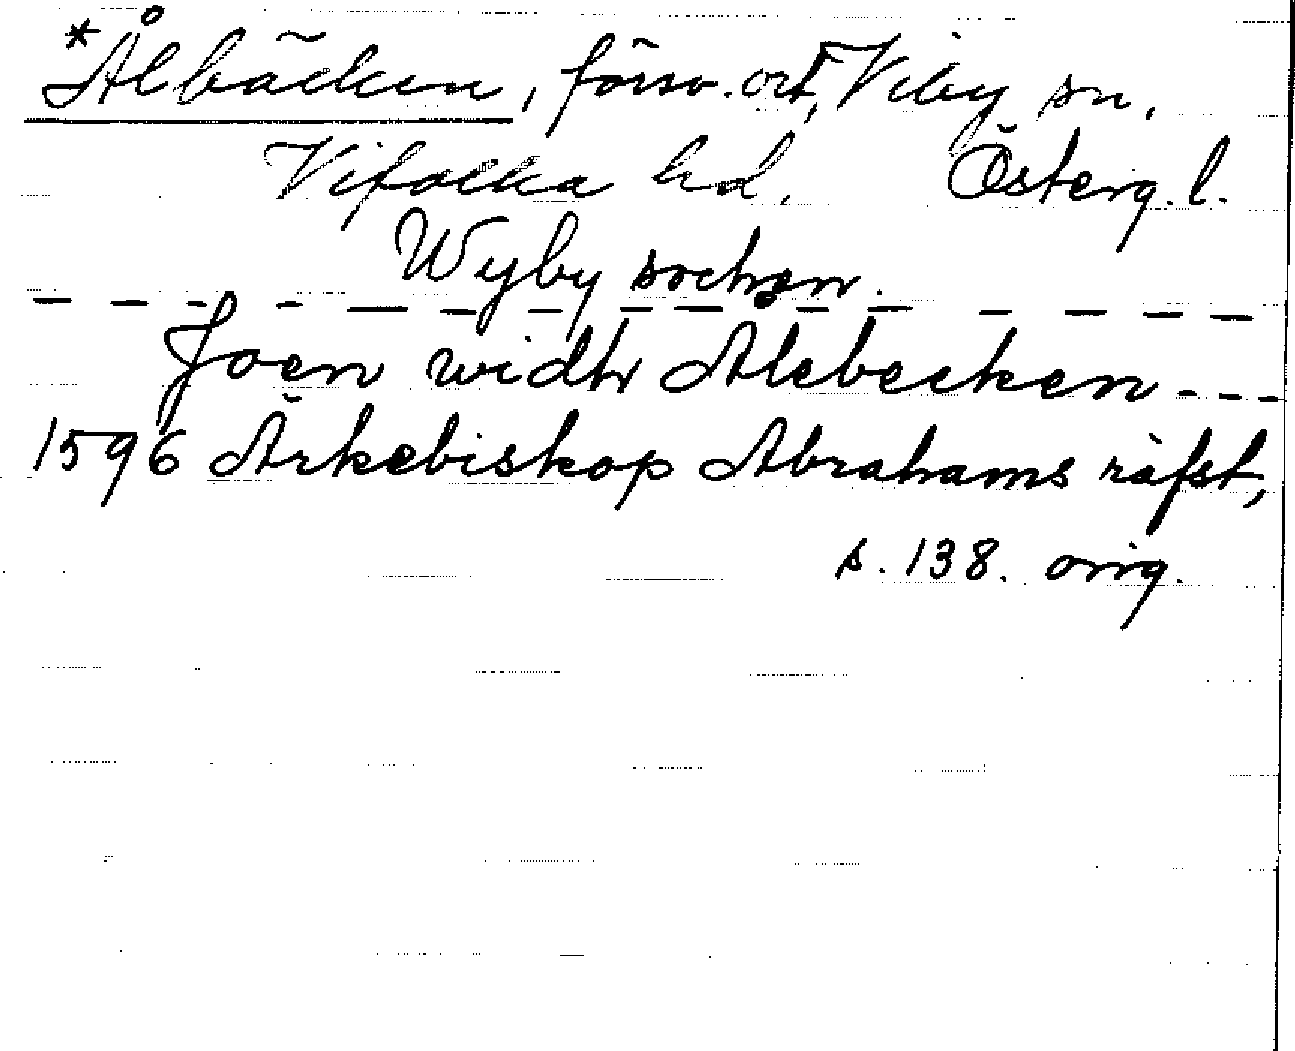 *Ålbäcken, försv. ort, Viby sn,
Vifolka hd. Österg. l.
Wyby sochen.
Joen widh Alebecken ---
1596 Ärkebiskop Abrahams räfst,
s. 138. orig.